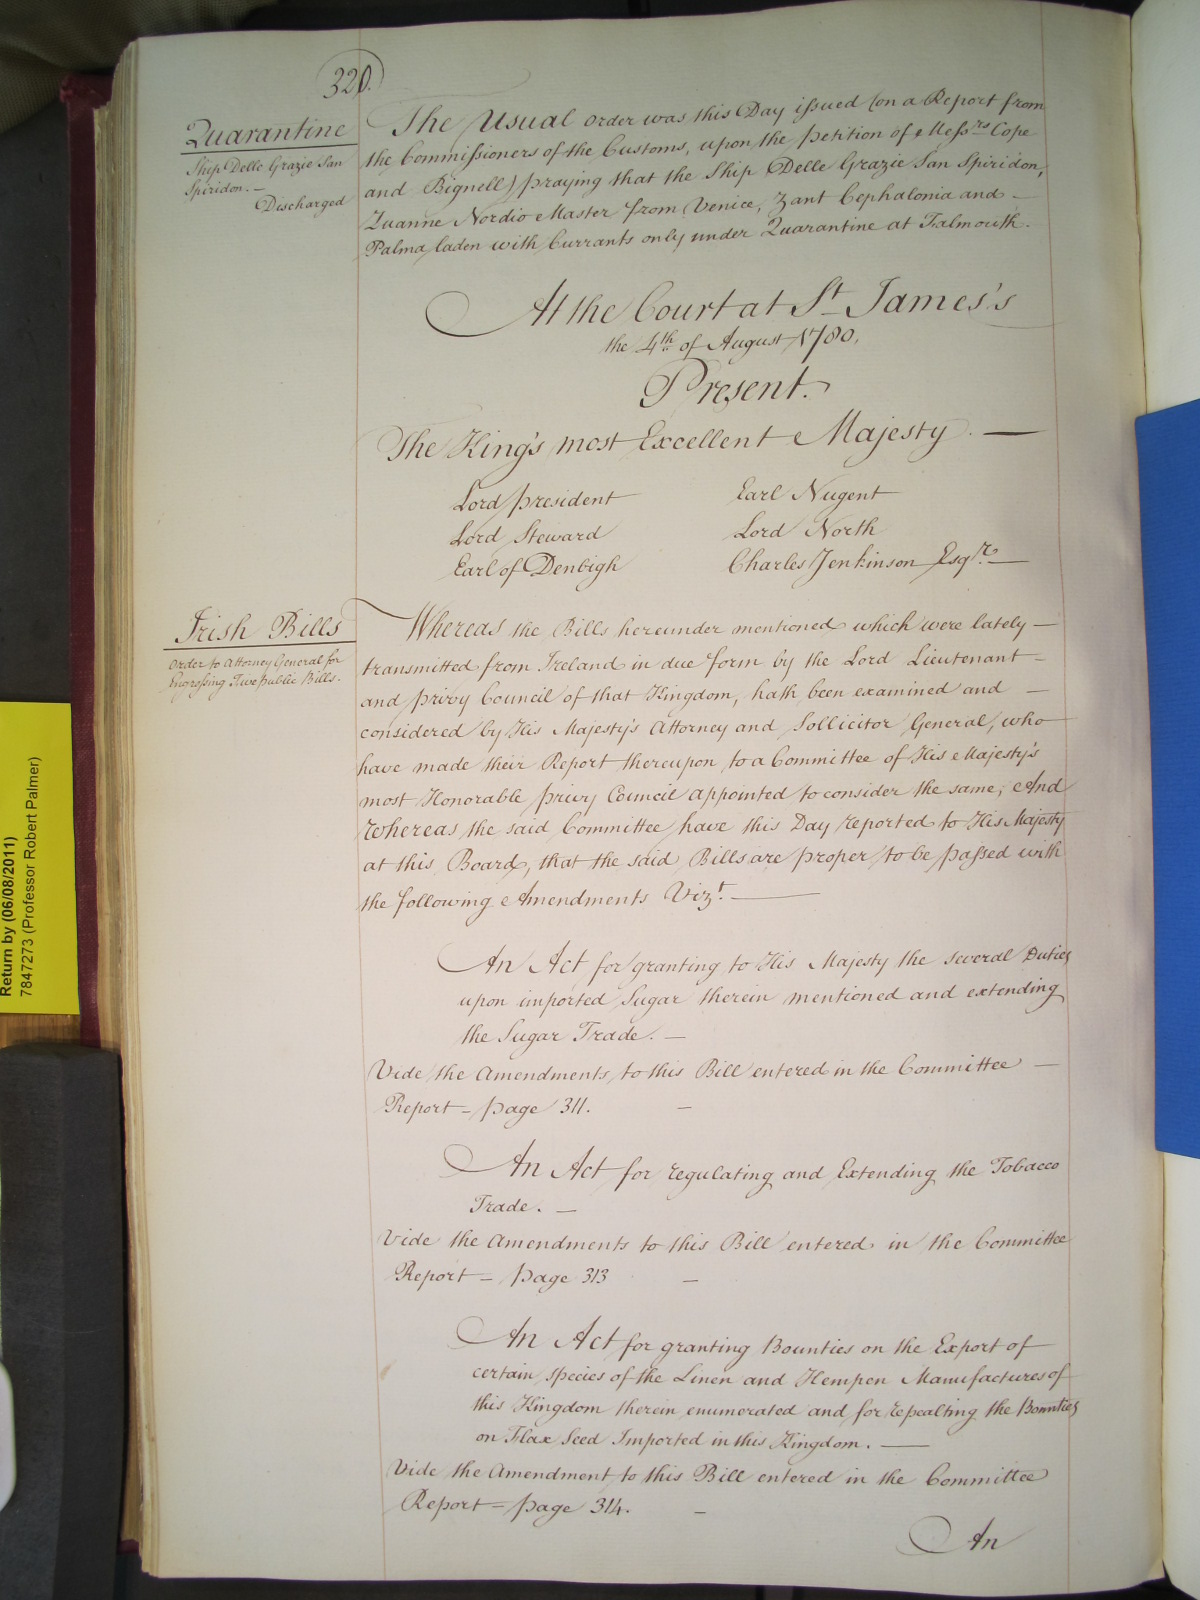 320.
Quarantine
Ship Delle Grazie San
Spiridon. —
Discharged
The Usual order was this Day issued (on a Report from
the Commissioners of the Customs, upon the petition of Messrs Cope
and Bignell) praying that the Ship Delle Grazie San Spiridon,
Zuanne Nordio Master from Venice, Zant Cephalonia and —
Palma laden with Currants only under Quarantine at Falmouth.
At the Court at St James's
the 4th of August 1780.
Present.
The King's most Excellent Majesty. —
Lord president
Earl Nugent
Lord Steward
Lord North
Earl of Denbigh
Charles Jenkinson Esqr. —
Irish Bills
Order to Attorney General for
Engrossing Five public Bills.
Whereas the Bills hereunder mentioned which were lately —
transmitted from Ireland in due form by the Lord Lieutenant —
and privy Council of that Kingdom, hath been examined and —
considered by His Majesty's Attorney and Sollicitor General, who
have made their Report thereupon to a Committee of His Majesty's
most Honorable privy Council appointed to consider the same; And
Whereas the said Committee have this Day reported to His Majesty
at this Board, that the said Bills are proper to be passed with
the following Amendments Vizt. —
An Act for granting to His Majesty the several Duties
upon imported Sugar therein mentioned and extending
the Sugar Trade. —
Vide the Amendments to this Bill entered in the Committee —
Report — page 311. —
An Act for regulating and Extending the Tobacco
Trade. —
Vide the Amendments to this Bill entered in the Committee
Report — page 313 —
An Act for granting Bounties on the Export of
certain species of the Linen and Hempen Manufactures of
this Kingdom therein enumerated and for repealting the Bounties
on Flax Seed Imported in this Kingdom. —
Vide the Amendment to this Bill entered in the Committee
Report — page 314. —
An
Return by (06/08/2011)
7847273 (Professor Robert Palmer)